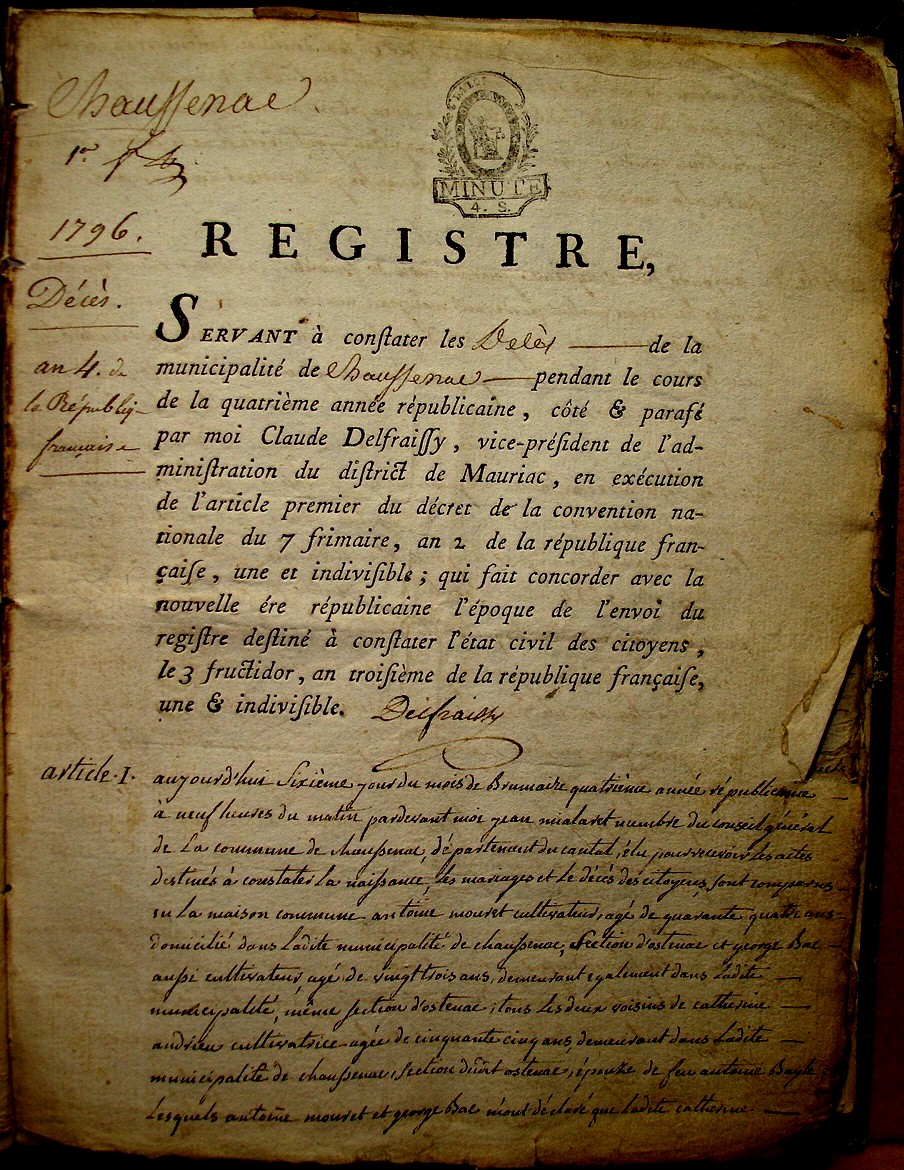 Chaussenac.
1er
1796.
Décès.
an 4. de
la Républiq-
française
LA LOI
MINUTE
4. S.
REGISTRE,
SERVANT à conſtater les Décès de la
municipalité de Chaussenac pendant le cours
de la quatrième année républicaine, côté & parafé
par moi Claude Delfraiſſy, vice-préſident de l'ad-
miniſtration du diſtrict de Mauriac, en exécution
de l'article premier du décret de la convention na-
tionale du 7 frimaire, an 2 de la république fran-
çaiſe, une et indiviſible; qui fait concorder avec la
nouvelle ére républicaine l'époque de l'envoi du
regiſtre deſtiné à conſtater l'état civil des citoyens,
le 3 fructidor, an troiſième de la république françaiſe,
une & indiviſible. Delfraissy
article.1. aujourd'hui Sixième jour du mois de Brumaire quatrième année républicaine
à neuf heures du matin pardevant moi jean mialaret membre du conseil général
de La commune de chaussenac, département du cantal, élu pour recevoir Les actes
destinés à constater La naissance, Les mariages et Le décès des citoyens, sont comparus
en La maison commune antoine mouret cultivateur, agé de quarante quatre ans
domicilié dans Ladite municipalité de chaussenac, Section d'ostenac et george Bac
aussi cultivateur, agé de vingt trois ans, demeurant egalement dans Ladite
municipalité, même section d'ostenac; tous Les deux voisins de catherine
andrieu cultivatrice agée de cinquante cinq ans, demeurant dans Ladite
municipalité de chaussenac, section dudit ostenac, épouse de feu antoine Bayle,
Lesquels antoine mouret et george Bac m'ont déclaré que Ladite catherine